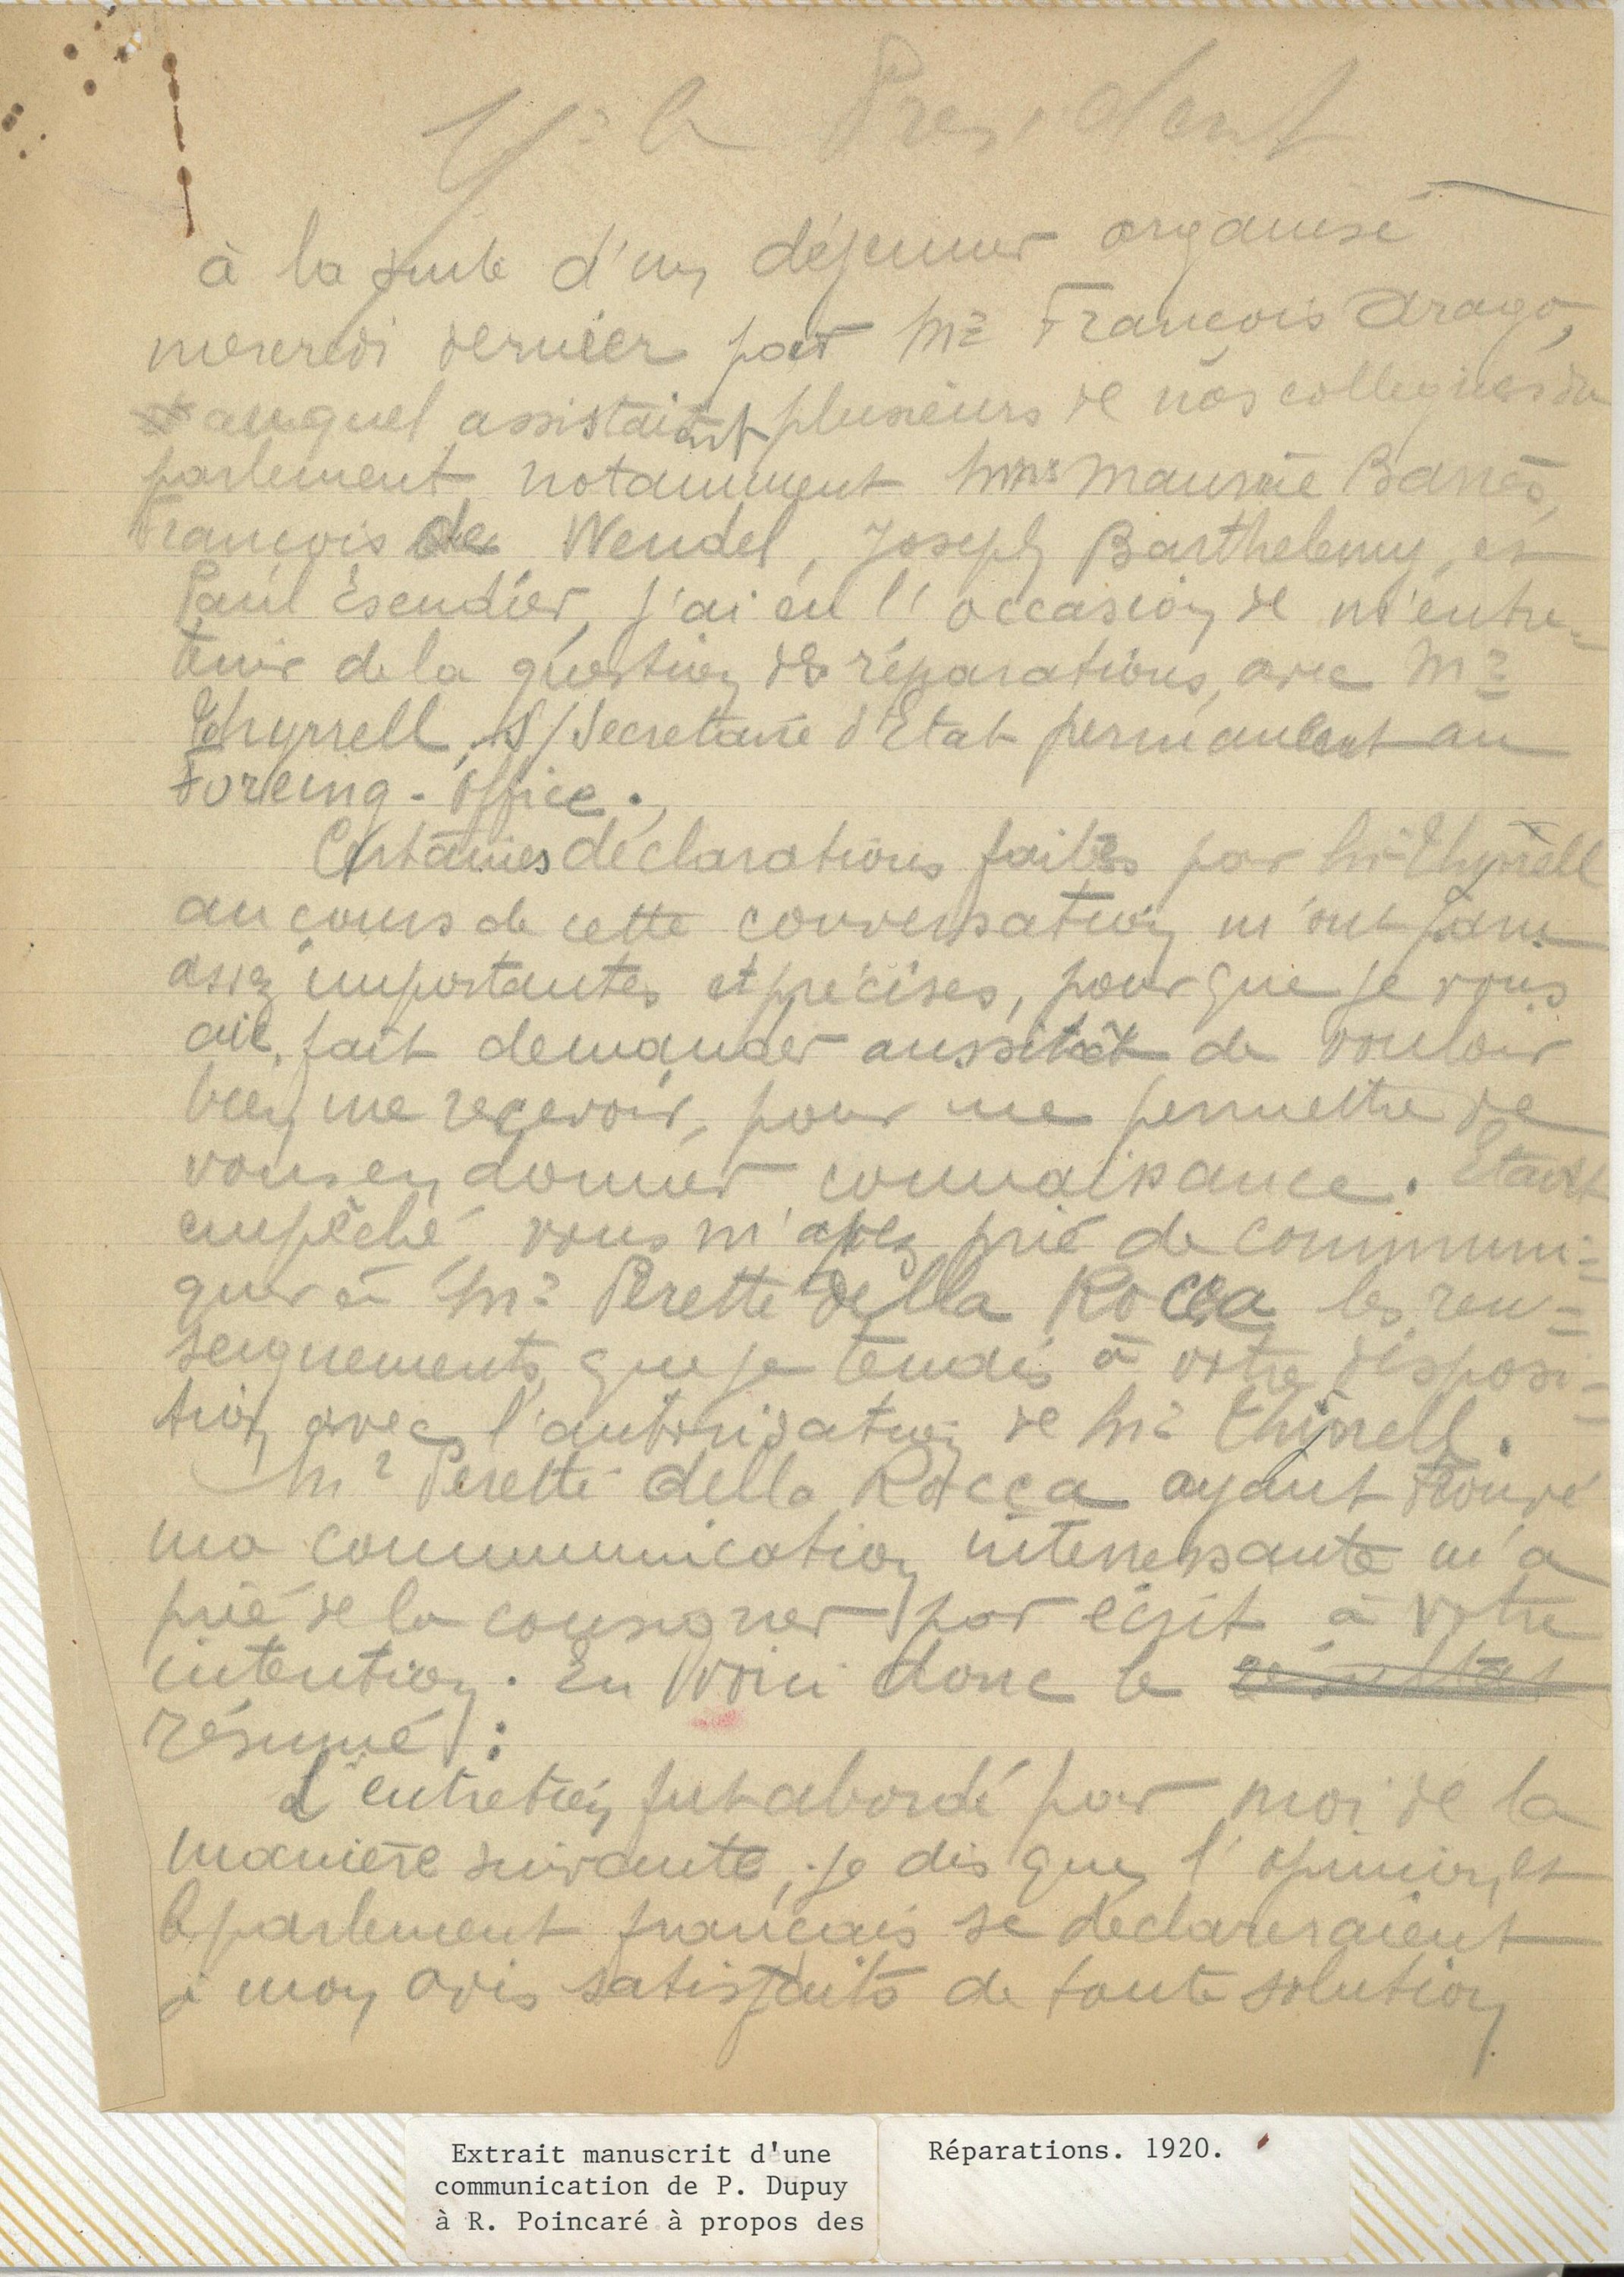 Mr le President
à la suite d'un déjeuner organisé
mercredi dernier par Mr François Arago,
auquel assistaient plusieurs de nos collegues du
parlement, notamment Mrs Maurice Barrès,
François de Wendel, Joseph Barthelemy, et
Paul Escudier, j'ai eu l'occasion de m'entre-
tenir de la question des réparations, avec Mr
Thyrrell, S/Secretaire d'Etat permanent au
Foreing-Office.
Certaines déclarations faites par Mr Thyrrell
au cours de cette conversation m'ont paru
assez importantes et précises, pour que je vous
aie fait demander aussitôt de vouloir
bien me recevoir, pour me permettre de
vous en donner connaissance. Etant
empêché, vous m'avez prié de communi=
quer à Mr Peretti della Rocca les ren=
seignements que je tenais à votre disposi-
tion, avec l'autorisation de Mr Thyrrell.
Mr Peretti della Rocca ayant trouvé
ma communication interressante m'a
prié de la consigner par écrit à votre
intention. En voici donc le résultat
résumé :
L'entretien fut abordé par moi de la
manière suivante, je dis que l'opinion, et
le parlement français se declareraient
à mon avis satisfaits de toute solution
Extrait manuscrit d'une
communication de P. Dupuy
à R. Poincaré à propos des
Réparations. 1920.